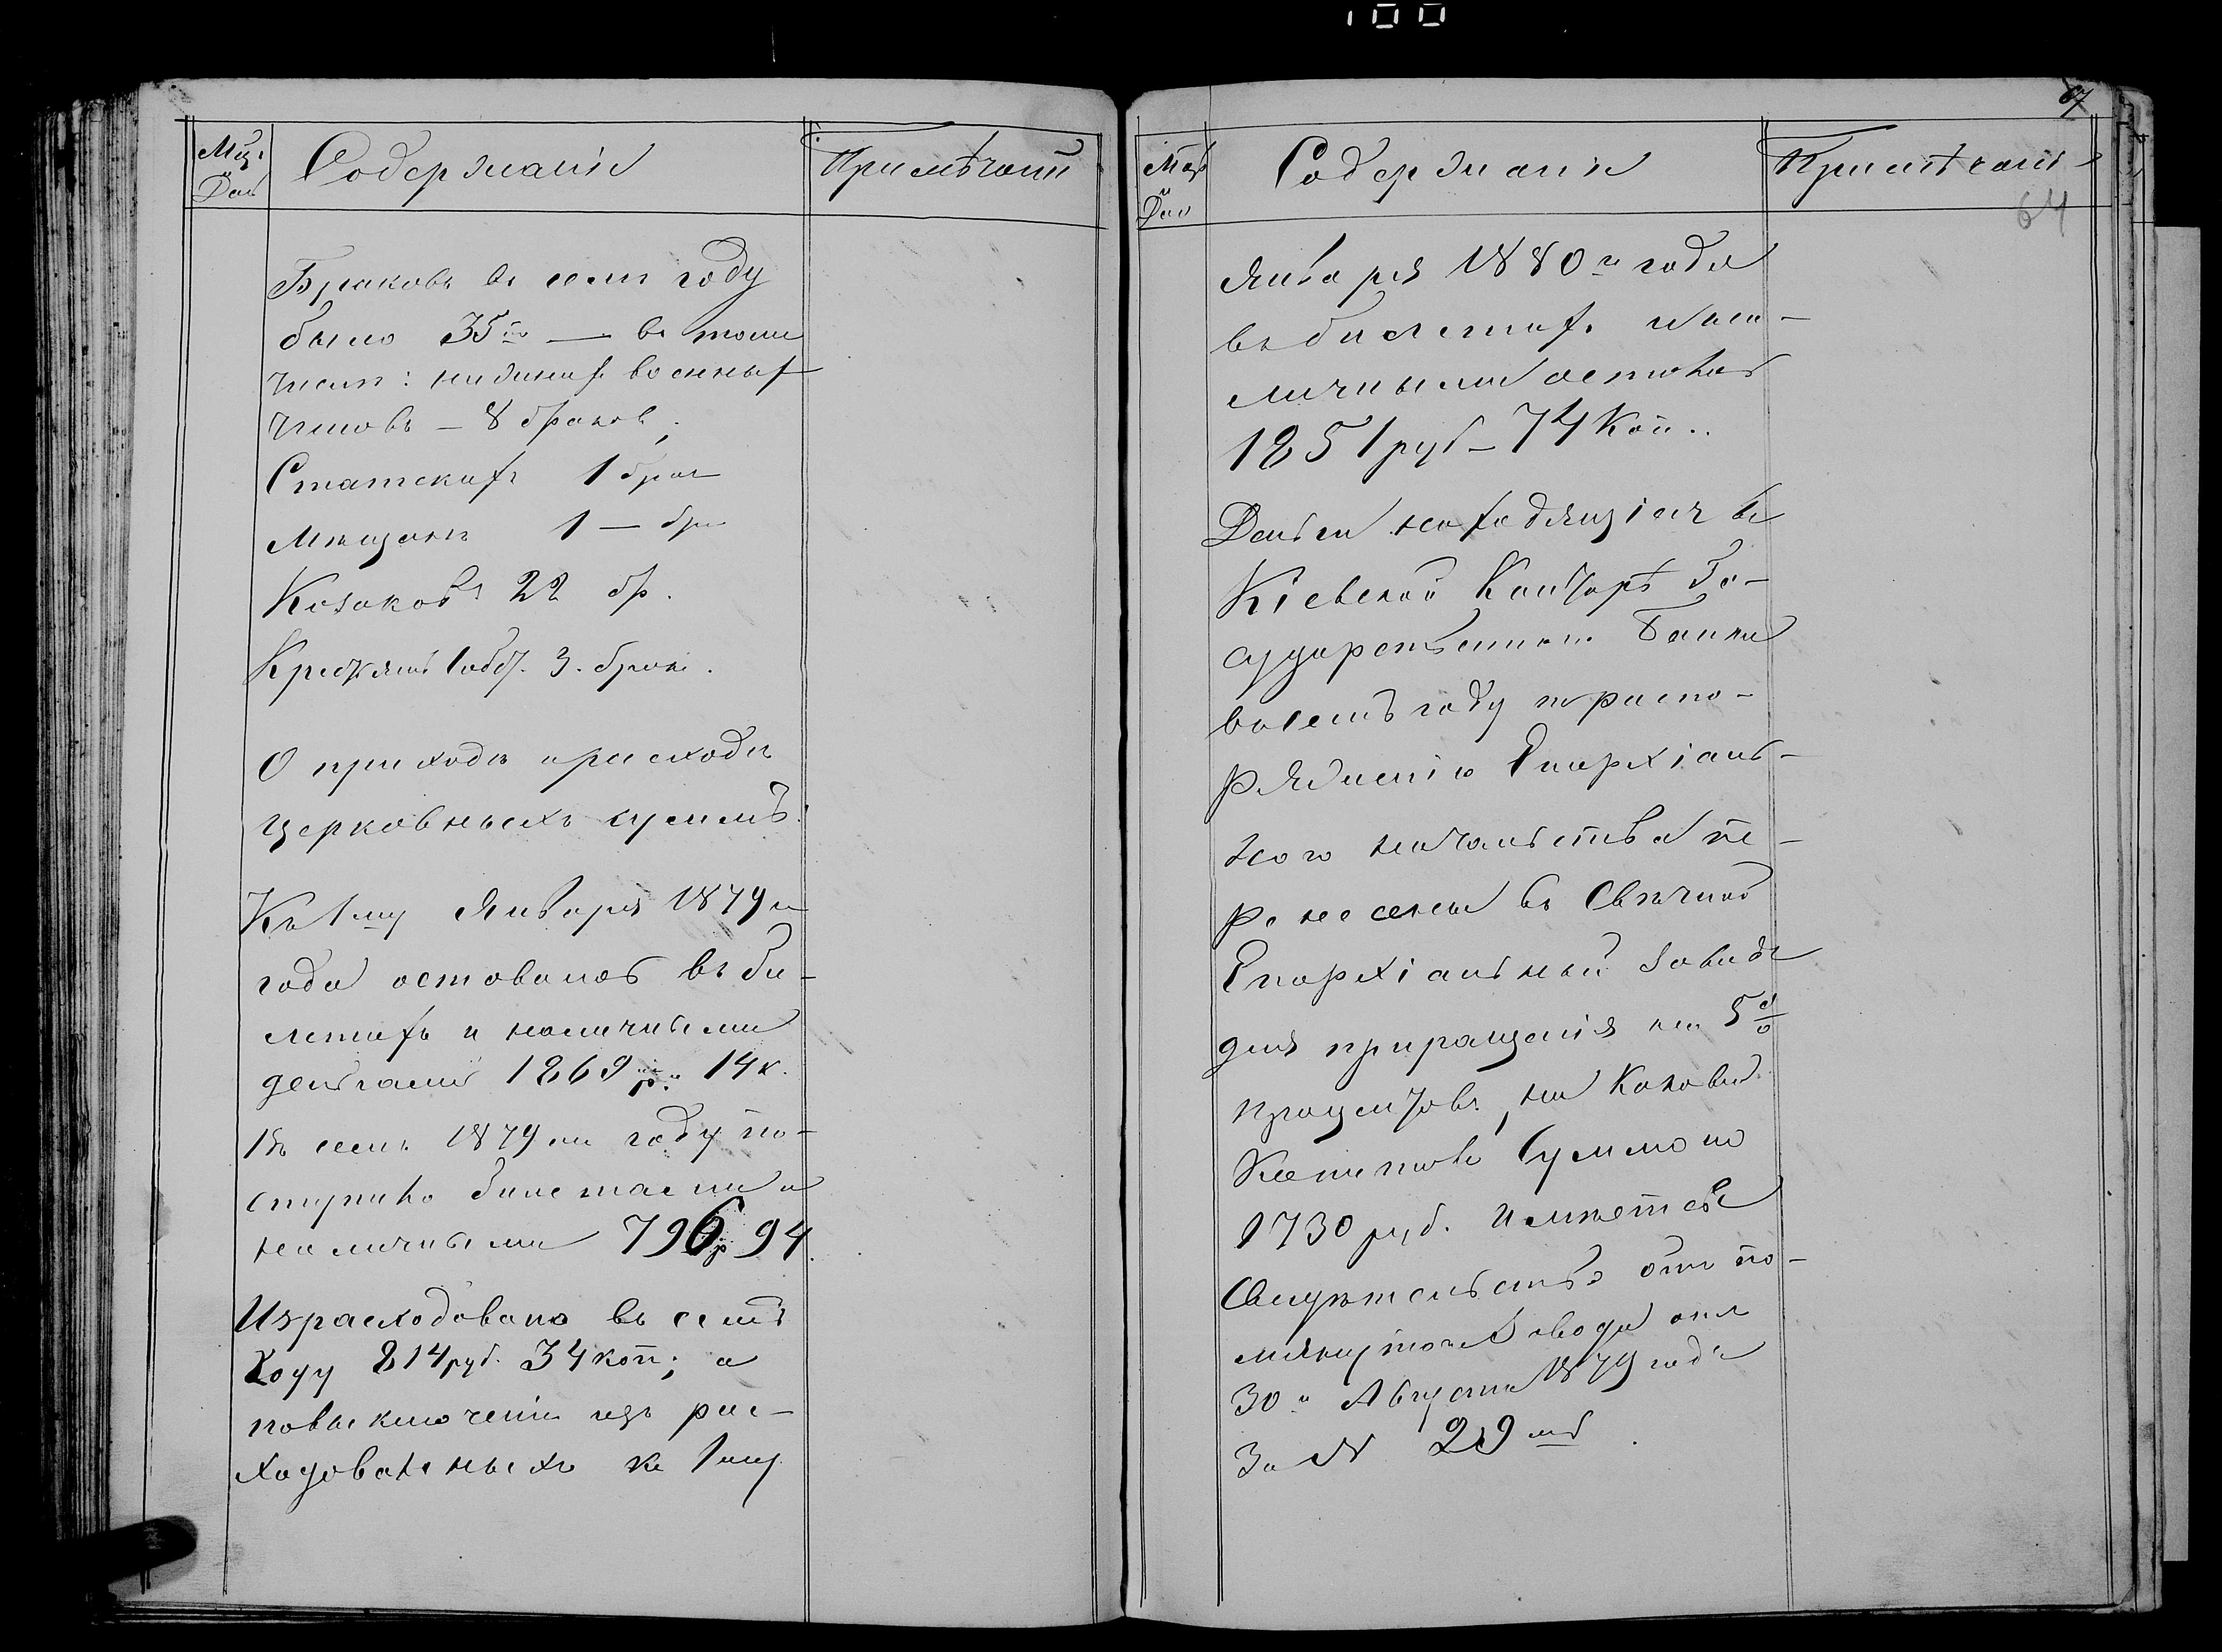 100
Мц. и Дни
Содержаніе
Примѣчаніи
Браковъ въ семъ году
было 35ть — въ томъ
числѣ: нижнихъ военныхъ
чиновъ — 8 браков;
Статскихъ 1 брак
Мѣщанъ 1 — бр
Козаковъ 22 бр.
Крестьянъ собст. 3. брак.
О приходѣ и расходѣ
церковныхъ суммъ.
Къ 1му Января 1879 г
года оставалось въ би-
летахъ и наличными
деньгами 1869 р. 14 к.
Въ семъ 1879 м году по-
ступило билетами и
наличными 796 р 94.
Израсходовано въ семъ
году 814 руб. 34 коп; а
по выключеніи изъ рас-
ходованныхъ къ 1му
67
Мцъ и Дни
Содержаніе
Примѣчаніе
64
Января 1880 го года
въ билетахъ и на-
личными осталось
1851 руб - 74 коп..
Деньги находящіеся въ
Кіевской Конторѣ Го-
сударственного Банка
въ семъ году по распо-
ряженію Епархіаль-
ного начальства пе-
ренесены въ Свѣчной
Епархіальный Заводъ
для приращенія на 5%
процентовъ, на каковой
Капиталъ Суммою
1730 руб. имѣется
Свидѣтельство отъ по-
мянутого завода отъ
30 " Августа 1879 года
За № 29 мъ.